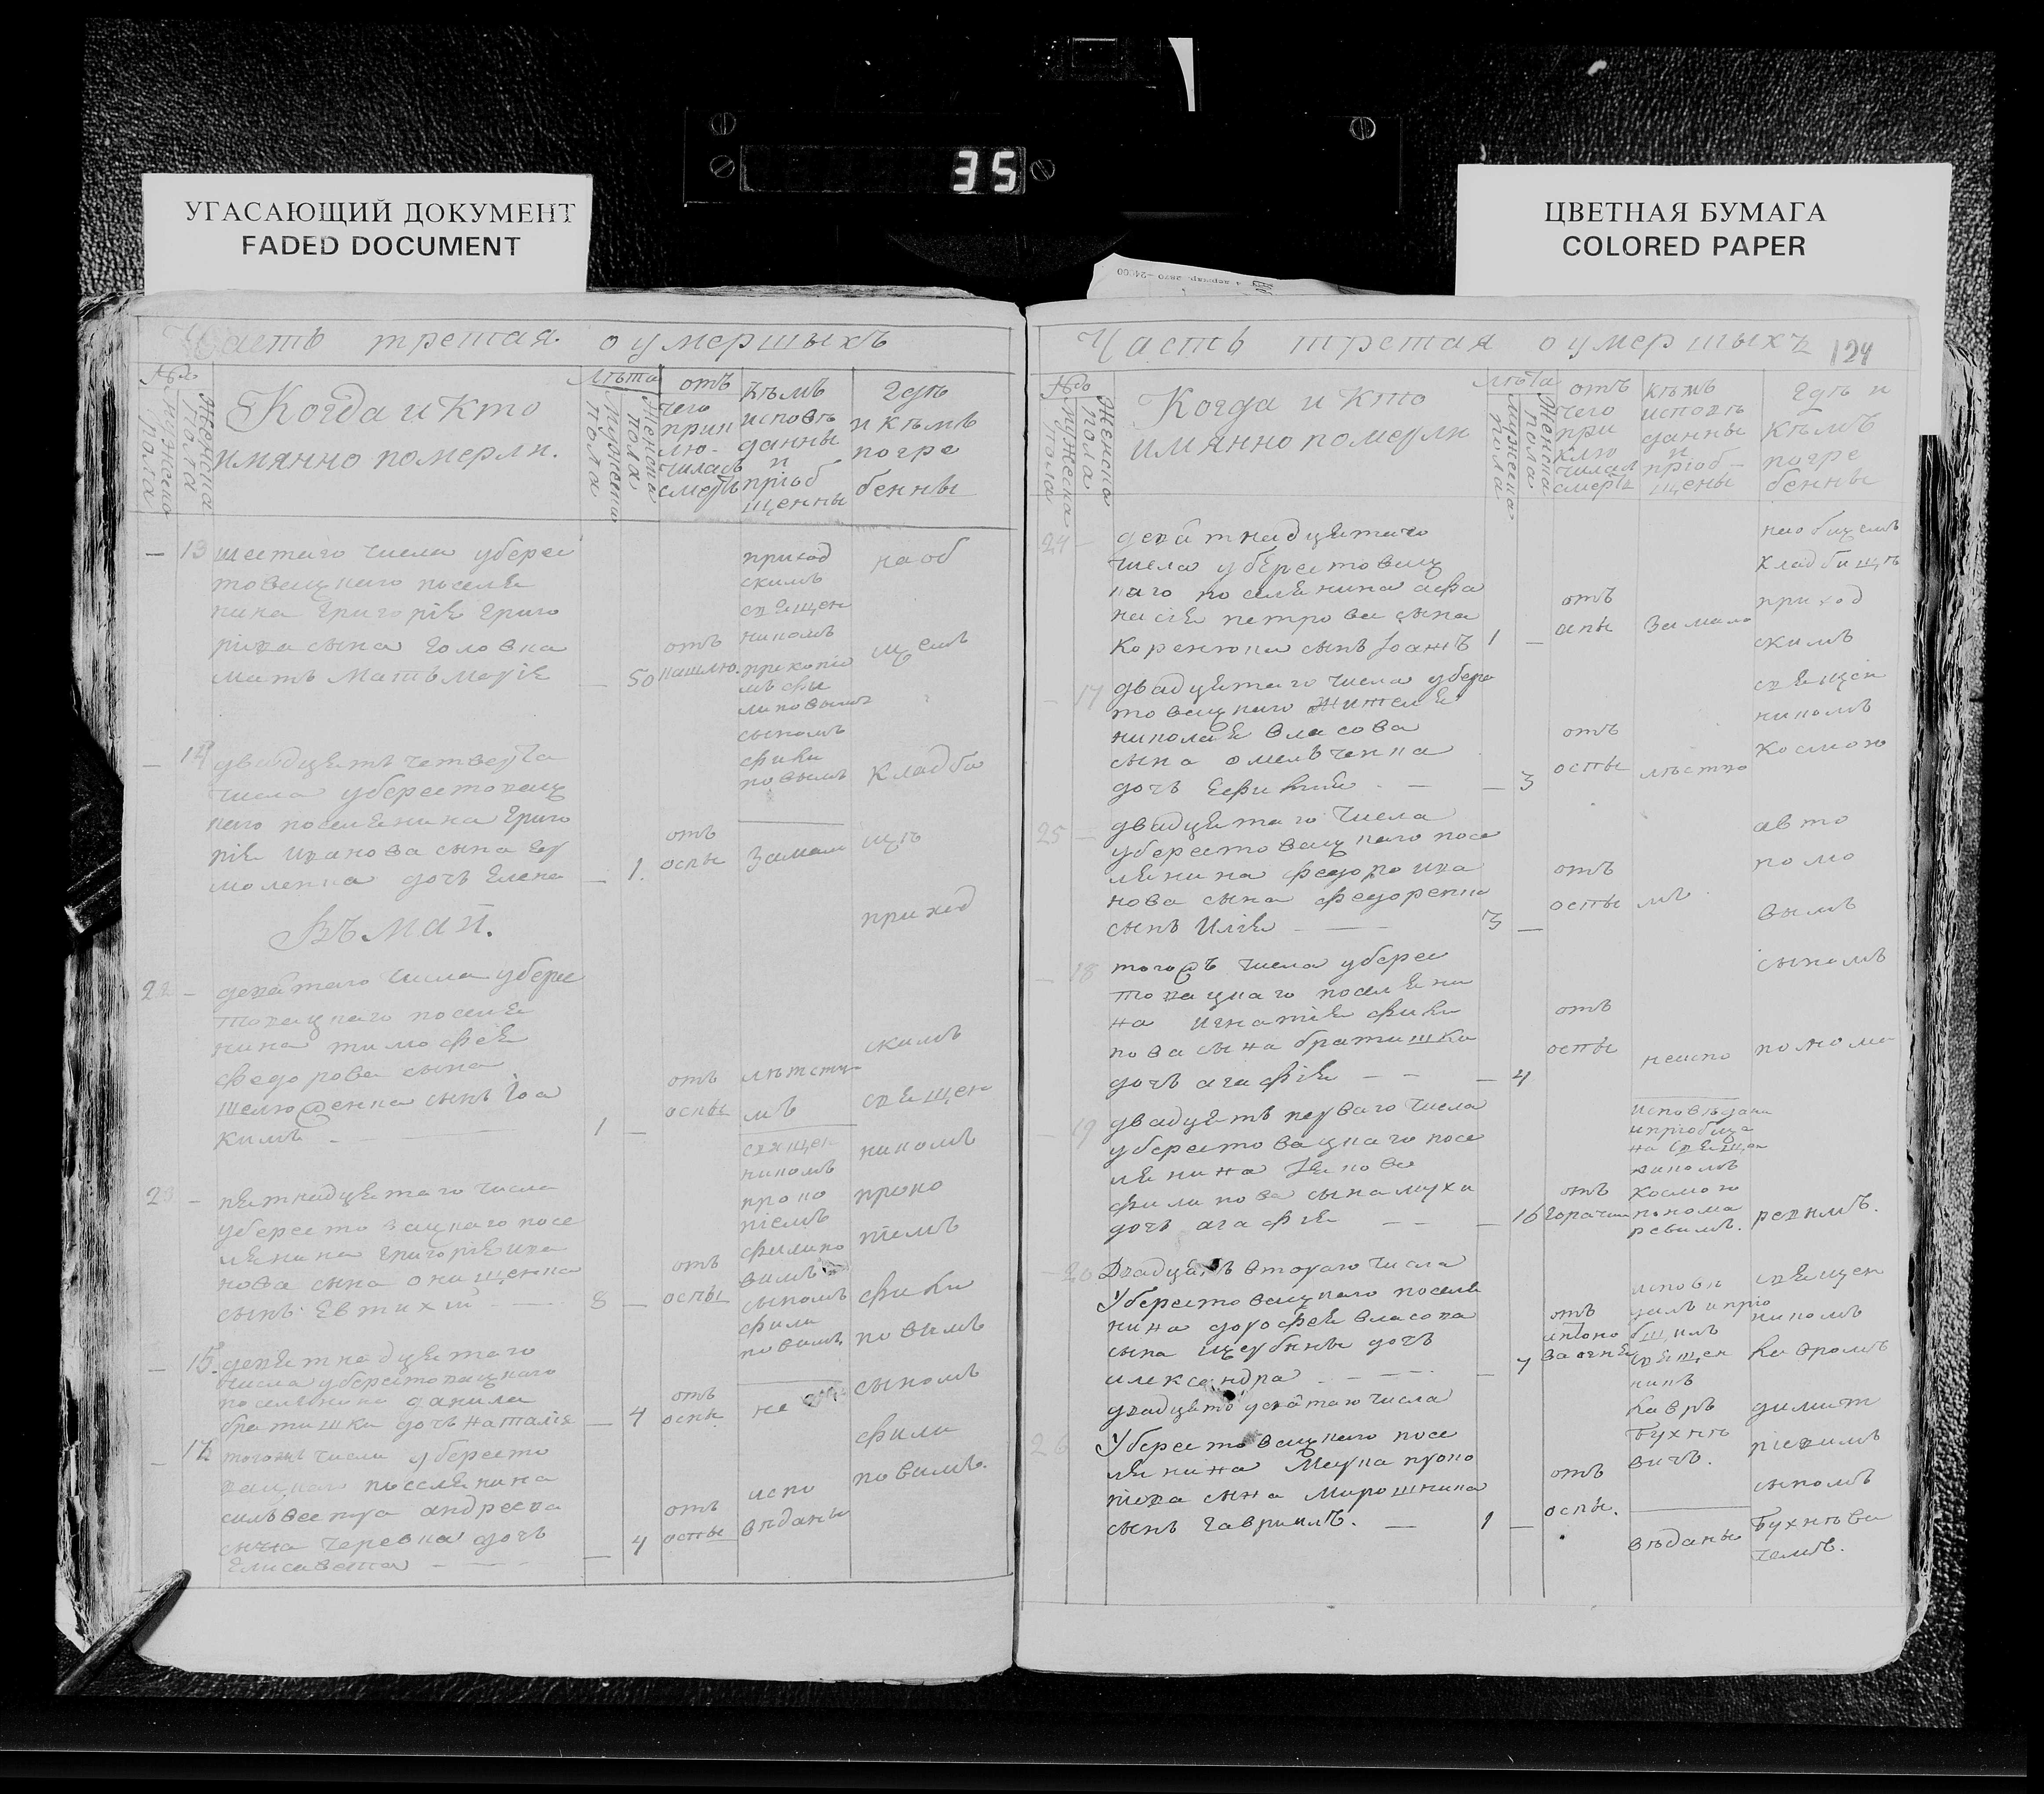 35
УГАСАЮЩИЙ ДОКУМЕНТ
FADED DOCUMENT
ЦВЕТНАЯ БУМАГА
COLORED PAPER
Часть третая оумершыхъ
№
Мужеска пола
Женска пола
Когда и кто
имянно померли.
Лѣта
Мужеска пола
Женска пола
отъ
чего
прик
лю-
чилась
смерть
кѣмъ
исповѣ
данны
и
пріоб
щенны
гдѣ
и кѣмъ
погре
бенны
13 шестаго числа уберес
товецкаго поселя
нина Григорія Григо
ріева сына Головка
мать Марія — 50
отъ
кашлю
приход
скимъ
священ
никомъ
прокопіе
мъ фи
липовымъ
сыномъ
на об
щемъ
кладби
щѣ
14 двадцять четверта
числа уберестовец
каго поселянина Григо
рія иванова сына Ер
моленка дочь Елена — 1.
отъ
оспы
замало
Въ май.
22 — девятаго числа уберес
товецкаго поселя
нина тимофея
федорова сына
сынъ Іоа
кимъ — 1 —
отъ
оспы
лѣтст
мъ
приход
скимъ
священ
никомъ
23 — пятнадцятаго числа
уберестовецкаго посе
лянина григорія ива
нова сына онищенка
сынъ Евтихій — 8 —
отъ
оспы
священ
никомъ
проко
піемъ
филипо
вимъ
сыномъ
проко
піемъ
15. девятнадцятаго
числа уберестовецкаго
поселянина данила
братишки дочь наталія — 4
отъ
оспы
не
сыномъ
фили
повимъ.
тогожъ числа убересто
вецкаго поселянина
сильвестра андреева
сына черевка дочь
Елисавета — 4
отъ
оспы
испо
вѣданы
Часть третая оумершыхъ
124
№
Мужеска пола
Женска пола
Когда и кто
имянно померли
Лѣта
Мужеска пола
Женска пола
отъ
чего
при
клю
чилась
смерть
кѣмъ
исповѣ
данны
и
пріоб-
щены
гдѣ и
кѣмъ
погре
бенны
24 — девятнадцятаго
числа уберестовец
каго поселянина афа
насія петрова сына
сынъ Іоаннъ 1 —
отъ
оспы
замало
на общемъ
кладбищѣ
приход
скимъ
священ
никомъ
космою
17 двадцятаго числа уберес
товецкаго жителя
николая власова
сына омельченка
дочь — 3
отъ
оспы
лѣтство
25 — двадцятаго числа
уберестовецкаго посе
лянина федора ива
нова сына федоренка
сынъ Илія — 3 —
отъ
оспы
мъ
авто
номо
вымъ
сыномъ
18 тогожъ числа уберес
товецкаго поселяни
на игнатія фили
пова сына братишки
дочь агафія — 4
отъ
оспы
неиспо
19 двадцять перваго числа
уберестовецкаго посе
лянина
филипова сына мухи
дочь агафія — 16
отъ
горячки
исповѣдана
и пріобща
на священ
никомъ
космою
понома
ревимъ.
понома
ревимъ.
20 Двадцять втораго числа
Уберестовецкаго поселя
нина дорофея власова
сына щербины дочь
александра — 7
отъ
исповѣ
далъ и прію
бщилъ
священ
никъ
лавръ
бухнѣ
вичъ.
священ
никомъ
лавромъ
димит
ріевимъ
сыномъ
бухнѣви
чемъ.
двадцять девятаго числа
26 Уберестовецкаго посе
лянина Марка проко
піева сына Мирошника
сынъ гавриилъ. — 1 —
отъ
оспы.
вѣданы